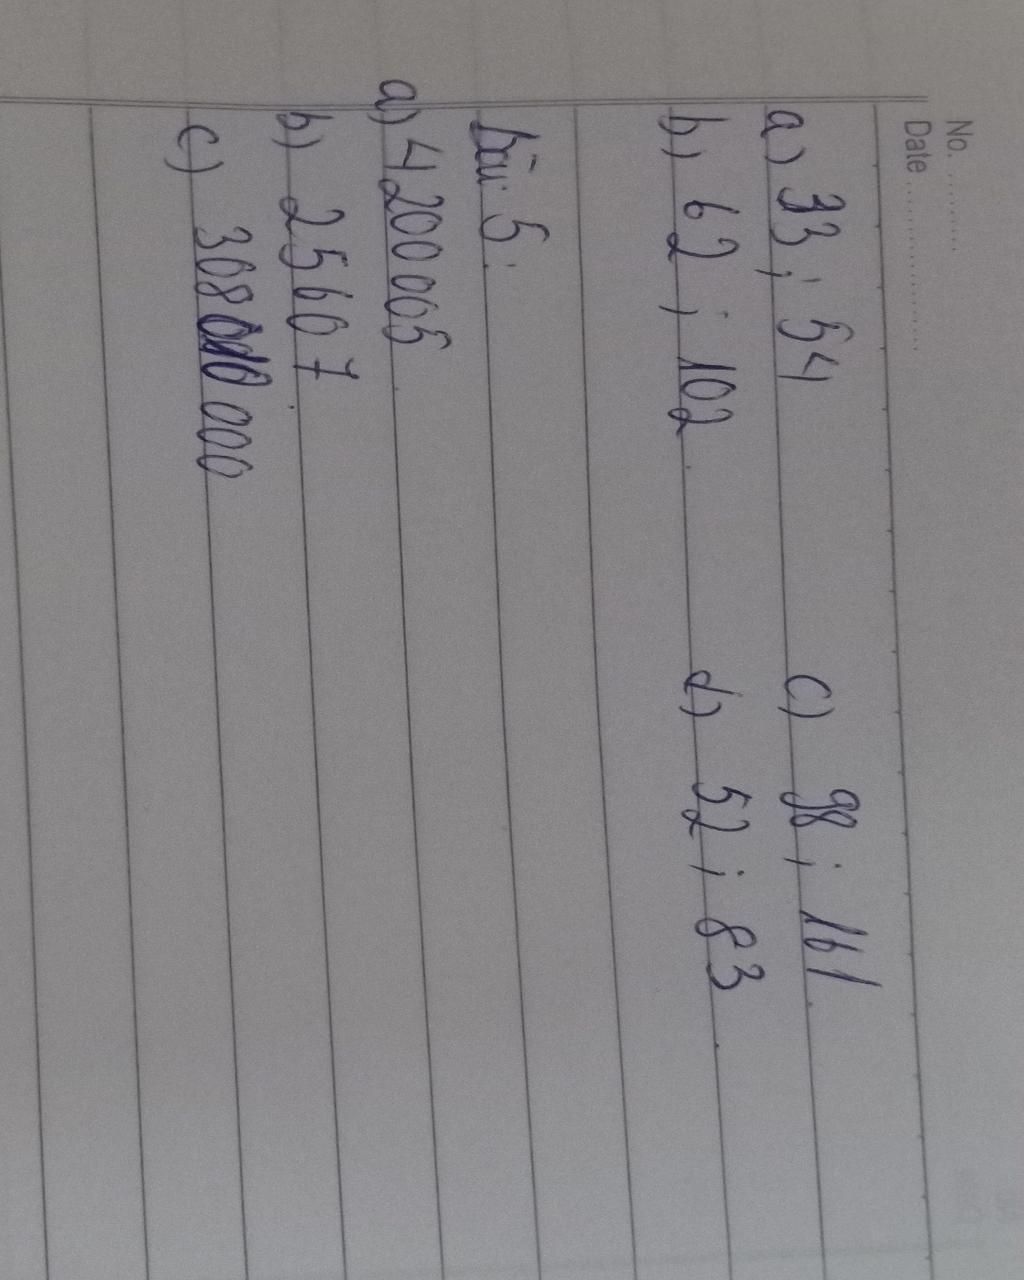 No. ..........
Date ....................
a) 33 ; 54 c) 98 ; 161
b) 62 ; 102 d) 52 ; 83
bài 5.
a) 4200 005
b) 25 607
c) 308 010 000